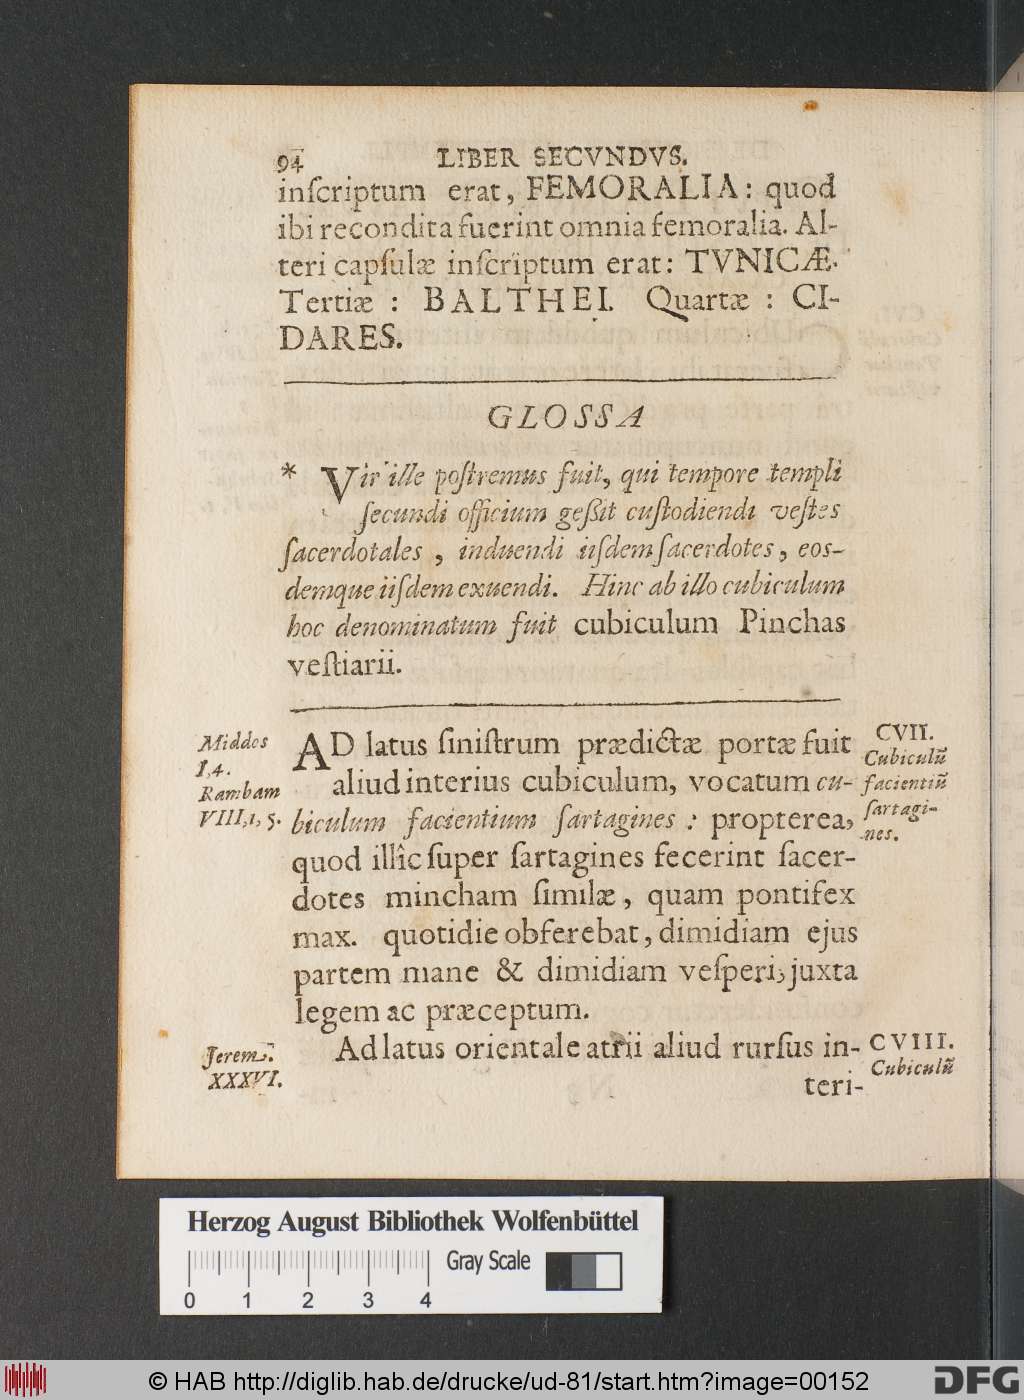 94 LIBER SECVNDVS.
inſcriptum erat, FEMORALIA: quod
ibi recondita fuerint omnia femoralia. Al-
teri capſulæ inſcriptum erat: TVNICÆ.
Tertiæ : BALTHEI. Quartæ : CI-
DARES.
GLOSSA
* Vir ille poſtremus fuit, qui tempore templi
ſecundi officium geßit cuſtodiendi veſtes
ſacerdotales , induendi iiſdem ſacerdotes, eos-
demque iiſdem exuendi. Hinc ab illo cubiculum
hoc denominatum fuit cubiculum Pinchas
veſtiarii.
Middos
I,4.
Rambam
VIII,1,5.
AD latus ſiniſtrum prædictæ portæ fuit
aliud interius cubiculum, vocatum cu-
biculum facientium ſartagines : propterea,
quod illîc ſuper ſartagines fecerint ſacer-
dotes mincham ſimilæ, quam pontifex
max. quotidie obferebat, dimidiam ejus
partem mane & dimidiam veſperi, juxta
legem ac præceptum.
CVII.
Cubiculũ
facientiũ
ſartagi-
nes.
Jerem.
XXXVI.
Ad latus orientale atrii aliud rurſus in-
CVIII.
Cubiculũ
teri-
Herzog August Bibliothek Wolfenbüttel
Gray Scale
0 1 2 3 4
© HAB http://diglib.hab.de/drucke/ud-81/start.htm?image=00152
DFG